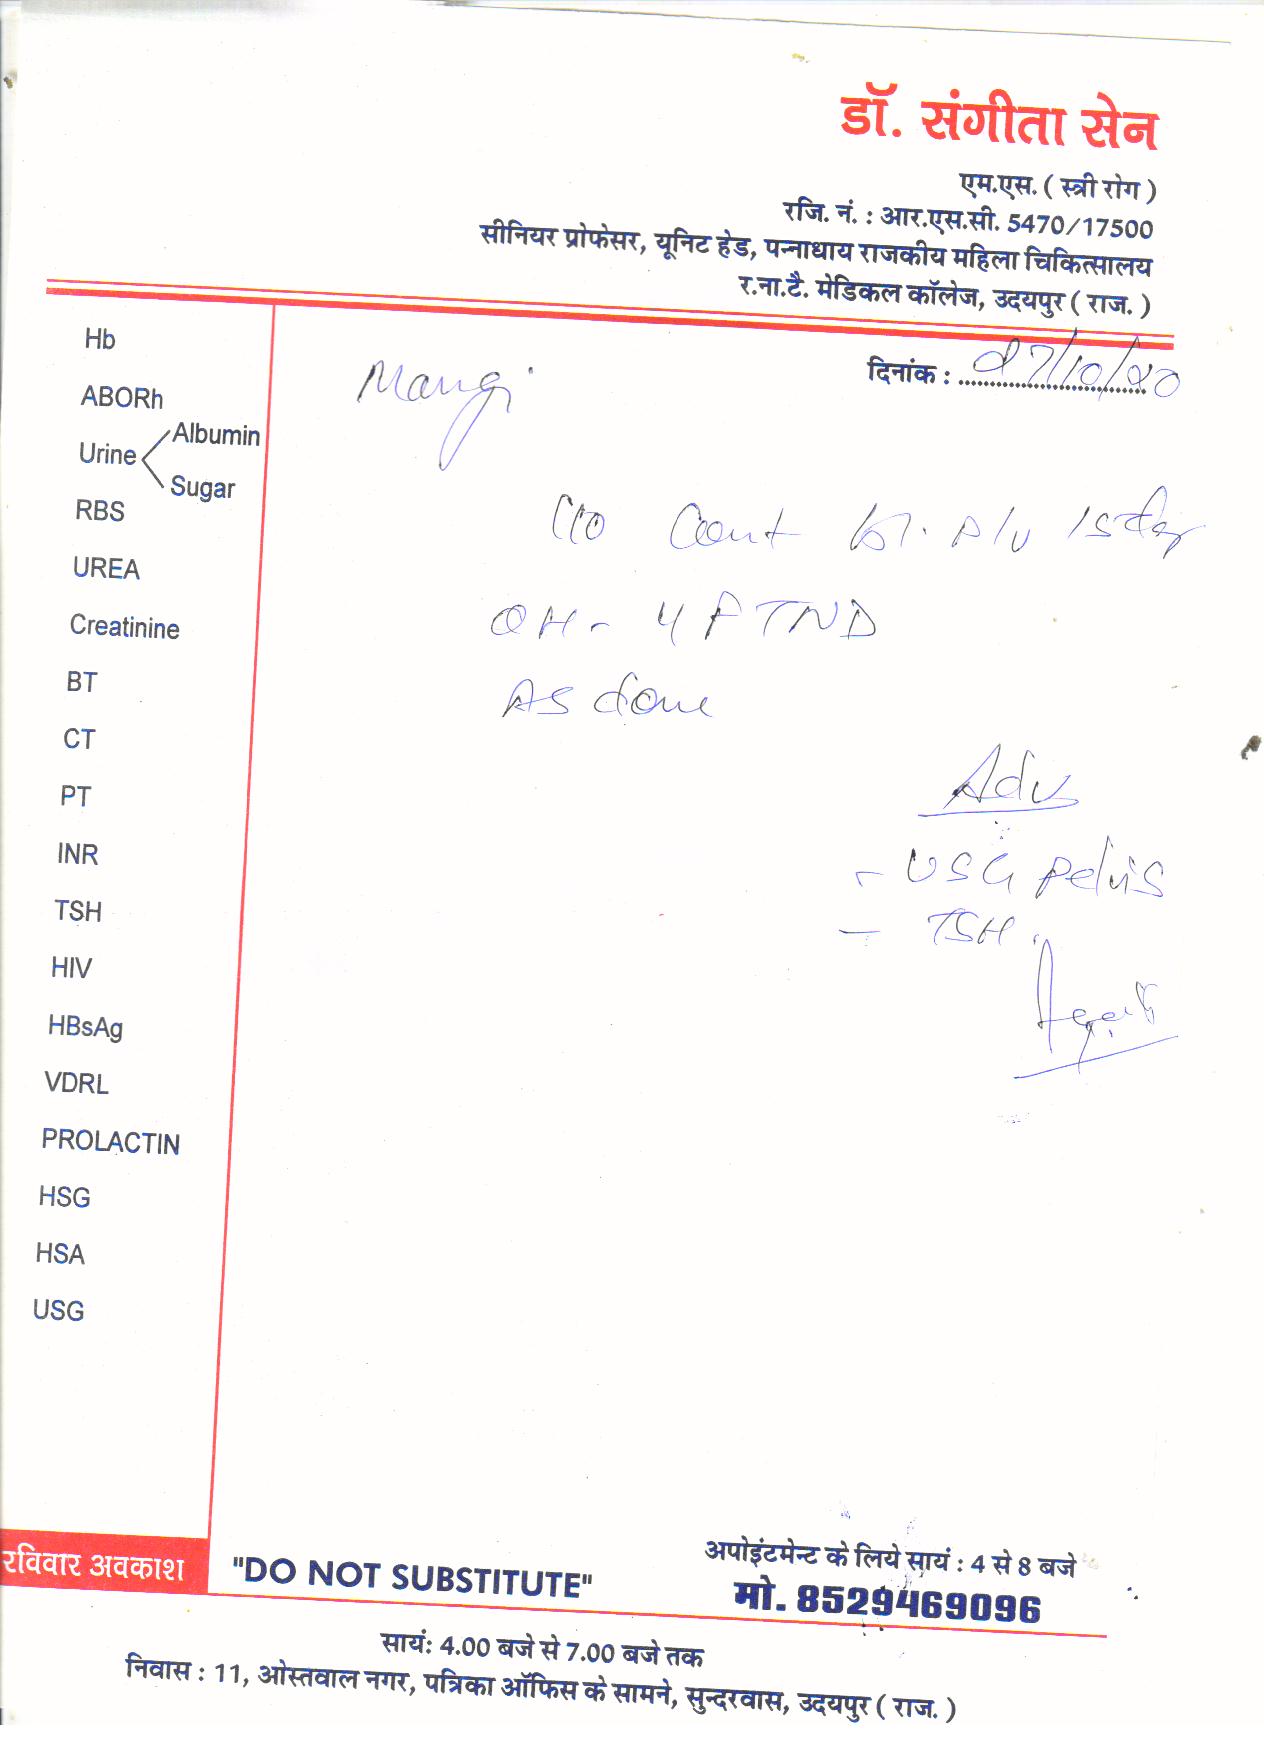 डॉ. संगीता सेन
एम.एस. ( स्त्री रोग )
रजि. नं. : आर.एस.सी. 5470/17500
सीनियर प्रोफेसर, यूनिट हेड, पन्नाधाय राजकीय महिला चिकित्सालय
र.ना.टै. मेडिकल कॉलेज, उदयपुर ( राज. )
दिनांक : 27/10/20
Mangi
Hb
ABORh
Urine Albumin
Sugar
RBS
UREA
Creatinine
BT
CT
PT
INR
TSH
HIV
HBsAg
VDRL
PROLACTIN
HSG
HSA
USG
C/O Cont bl. P/V 15 day
OH - 4 FTND
AS done
Adv
- USG Pelvis
- TSH
रविवार अवकाश
"DO NOT SUBSTITUTE"
अपोइंटमेन्ट के लिये सायं : 4 से 8 बजे
मो. 8529469096
सायं: 4.00 बजे से 7.00 बजे तक
निवास : 11, ओस्तवाल नगर, पत्रिका ऑफिस के सामने, सुन्दरवास, उदयपुर ( राज. )